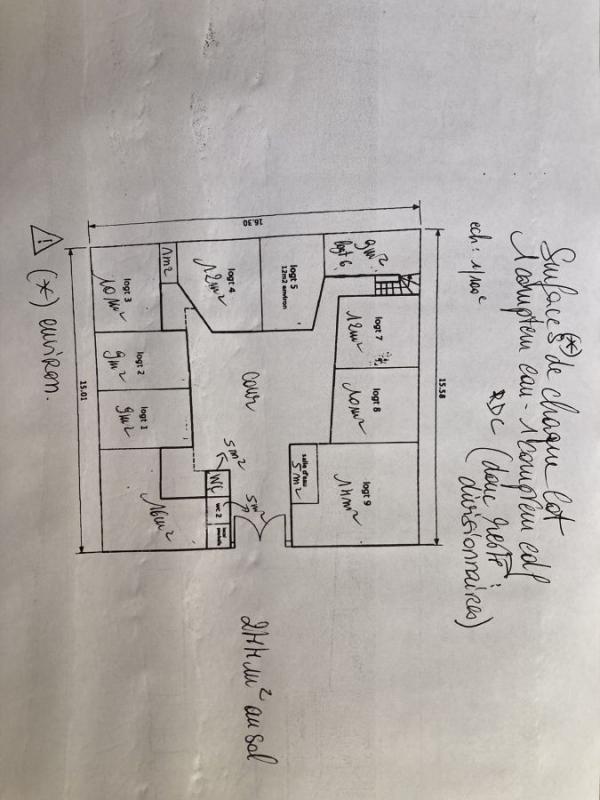 Surfaces (*) de chaque lot
1 compteur eau - 1 compteur edf
(donc reste : divisionnaires)
RDC
ech : 1/100°
16.30
15.58
15.01
9m²
logt 6
logt 5
12m2 environ
logt 4
12m²
1m²
logt 3
10m²
logt 7
12m²
logt 8
10m²
logt 2
9m²
logt 1
9m²
cour
salle d'eau
5m²
logt 9
14m²
5m²
WC
wc 2
5m²
16m²
244m² au sol
(*) environ.